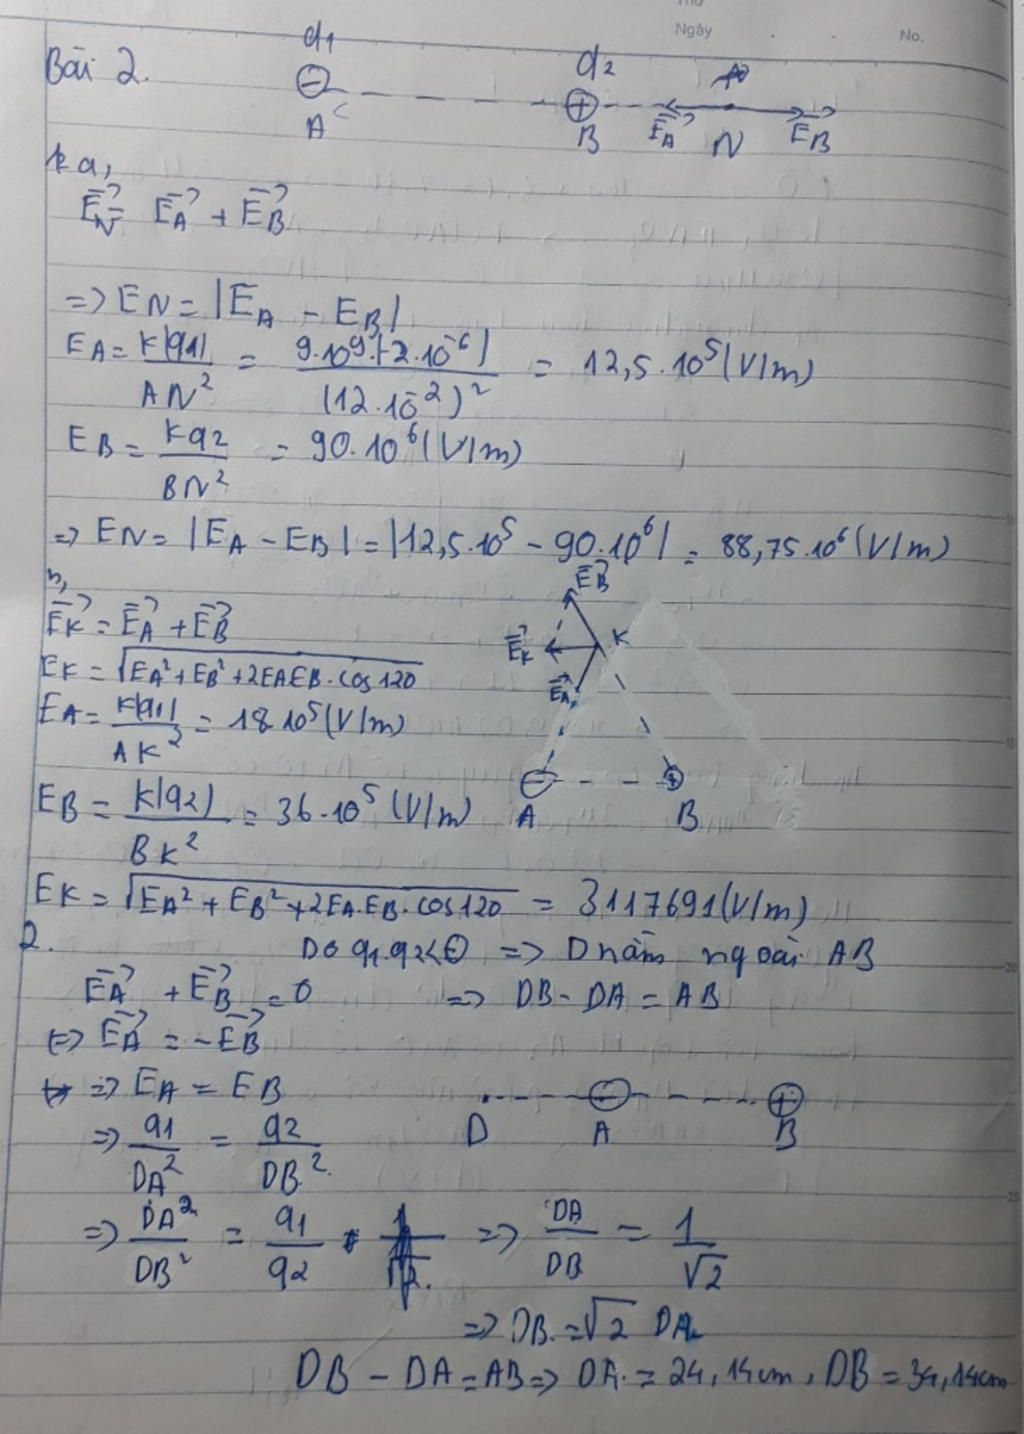 Thứ
Ngày
No.
Bài 2.
q1
q2
A
B
EA
N
EB
a,
EN = EA + EB
=> EN = |EA - EB|
EA = K|q1| / AN² = 9.10⁹.|-2.10⁻⁶| / (12.10⁻²)² = 12,5.10⁵ (V/m)
EB = Kq2 / BN² = 90.10⁶ (V/m)
=> EN = |EA - EB| = |12,5.10⁵ - 90.10⁶| = 88,75.10⁶ (V/m)
b,
EK = EA + EB
EK = √(EA² + EB² + 2EAEB.cos120)
EA = K|q1| / AK² = 18.10⁵ (V/m)
EB
K
EK
EA
A
B
EB = K|q2| / BK² = 36.10⁵ (V/m)
EK = √(EA² + EB² + 2EA.EB.cos120) = 3117691 (V/m)
2.
Do q1.q2<0 => D nằm ngoài AB
EA + EB = 0 => DB - DA = AB
<=> EA = -EB
=> EA = EB
D
A
B
=> q1 / DA² = q2 / DB²
=> DA² / DB² = q1 / q2 => DA / DB = 1 / √2
=> DB = √2 DA
DB - DA = AB => DA = 24,14cm, DB = 34,14cm